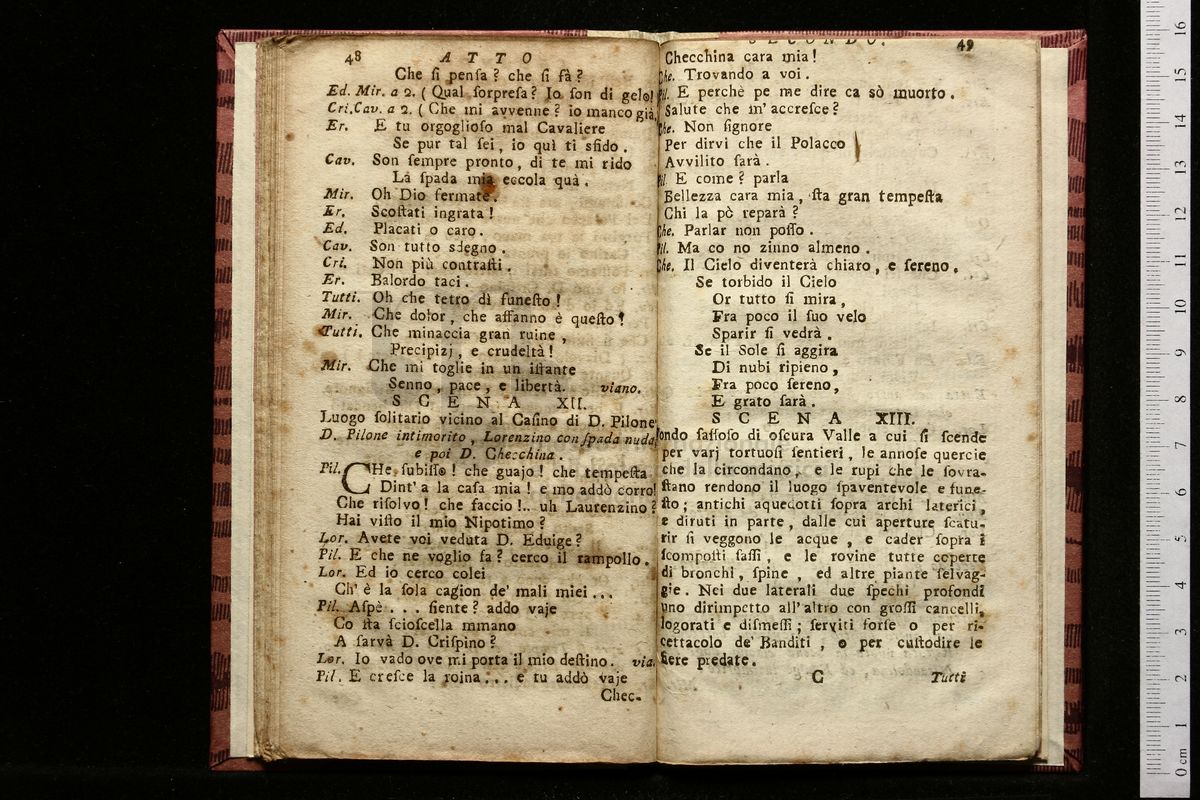 48 ATTO
Che ſi penſa? che ſi fà?
Ed. Mir. a 2. (Qual ſorpreſa? Io ſon di gelo!
Cri. Cav. a 2. (Che mi avvenne? io manco già,
Er. E tu orgoglioſo mal Cavaliere
Se pur tal ſei, io quì ti sfido.
Cav. Son ſempre pronto, di te mi rido
La ſpada mia eccola quà.
Mir. Oh Dio fermate.
Er. Scoſtati ingrata!
Ed. Placati o caro.
Cav. Son tutto sdegno.
Cri. Non più contraſti.
Er. Balordo taci.
Tutti. Oh che tetro dì funeſto!
Mir. Che dolor, che affanno è queſto!
Tutti. Che minaccia gran ruine,
Precipizj, e crudeltà!
Mir. Che mi toglie in un iſtante
Senno, pace, e libertà. viano.
SCENA XII.
Luogo ſolitario vicino al Caſino di D. Pilone
D. Pilone intimorito, Lorenzino con ſpada nuda
e poi D. Checchina.
Pil. CHe ſubiſſo! che guajo! che tempeſta
Dint' a la caſa mia! e mo addò corro!
Che riſolvo! che faccio!.. uh Laurenzino?
Hai viſto il mio Nipotimo?
Lor. Avete voi veduta D. Eduige?
Pil. E che ne voglio fa? cerco il rampollo.
Lor. Ed io cerco colei
Ch' è la ſola cagion de' mali miei...
Pil. Aſpè... ſiente? addo vaje
Co ſta ſcioſcella mmano
A ſarvà D. Criſpino?
Lor. Io vado ove mi porta il mio deſtino. via.
Pil. E creſce la roina... e tu addò vaje
Chec-
SECONDO. 49
Checchina cara mia!
Che. Trovando a voi.
Pil. E perchè pe me dire ca sò muorto.
Salute che m' accreſce?
Che. Non ſignore
Per dirvi che il Polacco
Avvilito ſarà.
Pil. E come? parla
Bellezza cara mia, ſta gran tempeſta
Chi la pò reparà?
Che. Parlar non poſſo.
Pil. Ma co no zinno almeno.
Che. Il Cielo diventerà chiaro, e ſereno.
Se torbido il Cielo
Or tutto ſi mira,
Fra poco il ſuo velo
Sparir ſi vedrà.
Se il Sole ſi aggira
Di nubi ripieno,
Fra poco ſereno,
E grato ſarà.
SCENA XIII.
Fondo ſaſſoſo di oſcura Valle a cui ſi ſcende
per varj tortuoſi ſentieri, le annoſe quercie
che la circondano, e le rupi che le ſovra-
ſtano rendono il luogo ſpaventevole e fune-
ſto; antichi aquedotti ſopra archi laterici,
e diruti in parte, dalle cui aperture ſcatu-
rir ſi veggono le acque, e cader ſopra i
ſcompoſti ſaſſi, e le rovine tutte coperte
di bronchi, ſpine, ed altre piante ſelvag-
gie. Nei due laterali due ſpechi profondi
uno dirimpetto all'altro con groſſi cancelli,
logorati e diſmeſſi; ſerviti forſe o per ri-
cettacolo de' Banditi, o per cuſtodire le
fiere predate.
C Tutti
0 cm 1 2 3 4 5 6 7 8 9 10 11 12 13 14 15 16